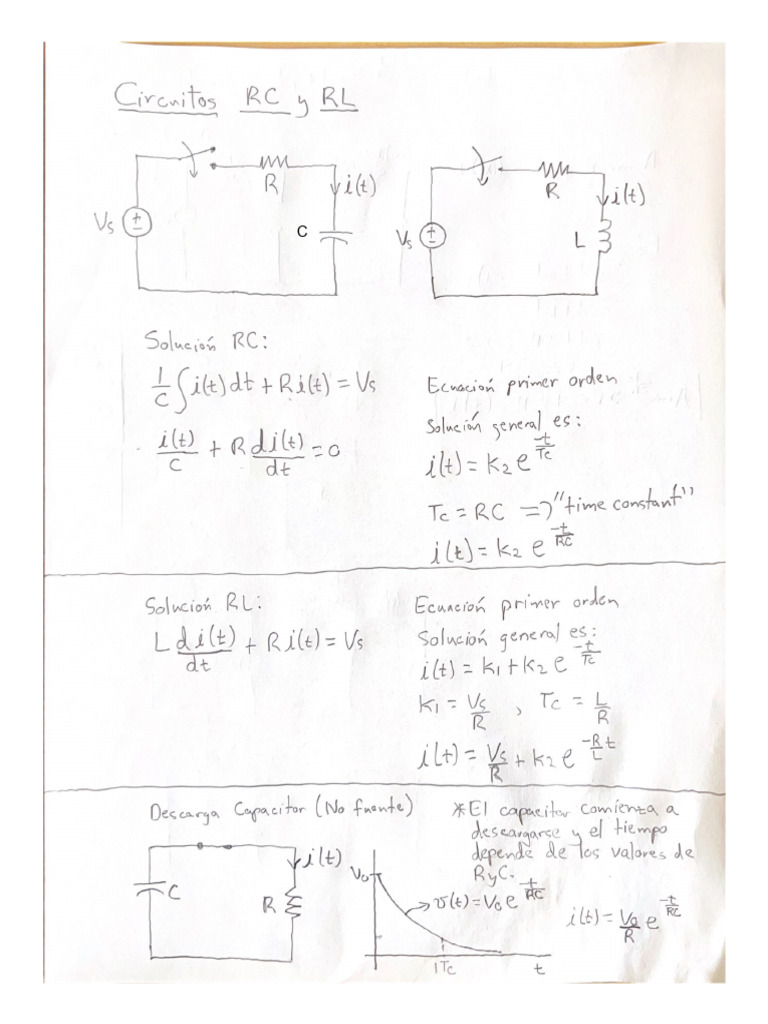 Circuitos RC y RL
R
i(t)
Vs
+
-
C
R
i(t)
Vs
+
-
L
Solución RC:
1/C ∫ i(t) dt + R i(t) = Vs
i(t)/C + R di(t)/dt = 0
Ecuación primer orden
Solución general es:
i(t) = K₂ e^(-t/Tc)
Tc = RC => "time constant"
i(t) = K₂ e^(-t/RC)
Solución RL:
L di(t)/dt + R i(t) = Vs
Ecuación primer orden
Solución general es:
i(t) = K₁ + K₂ e^(-t/Tc)
K₁ = Vs/R , Tc = L/R
i(t) = Vs/R + K₂ e^(-R/L t)
Descarga Capacitor (No fuente)
C
i(t)
R
V₀
v(t) = V₀ e^(-t/RC)
1Tc
t
*El capacitor comienza a
descargarse y el tiempo
depende de los valores de
R y C.
i(t) = V₀/R e^(-t/RC)